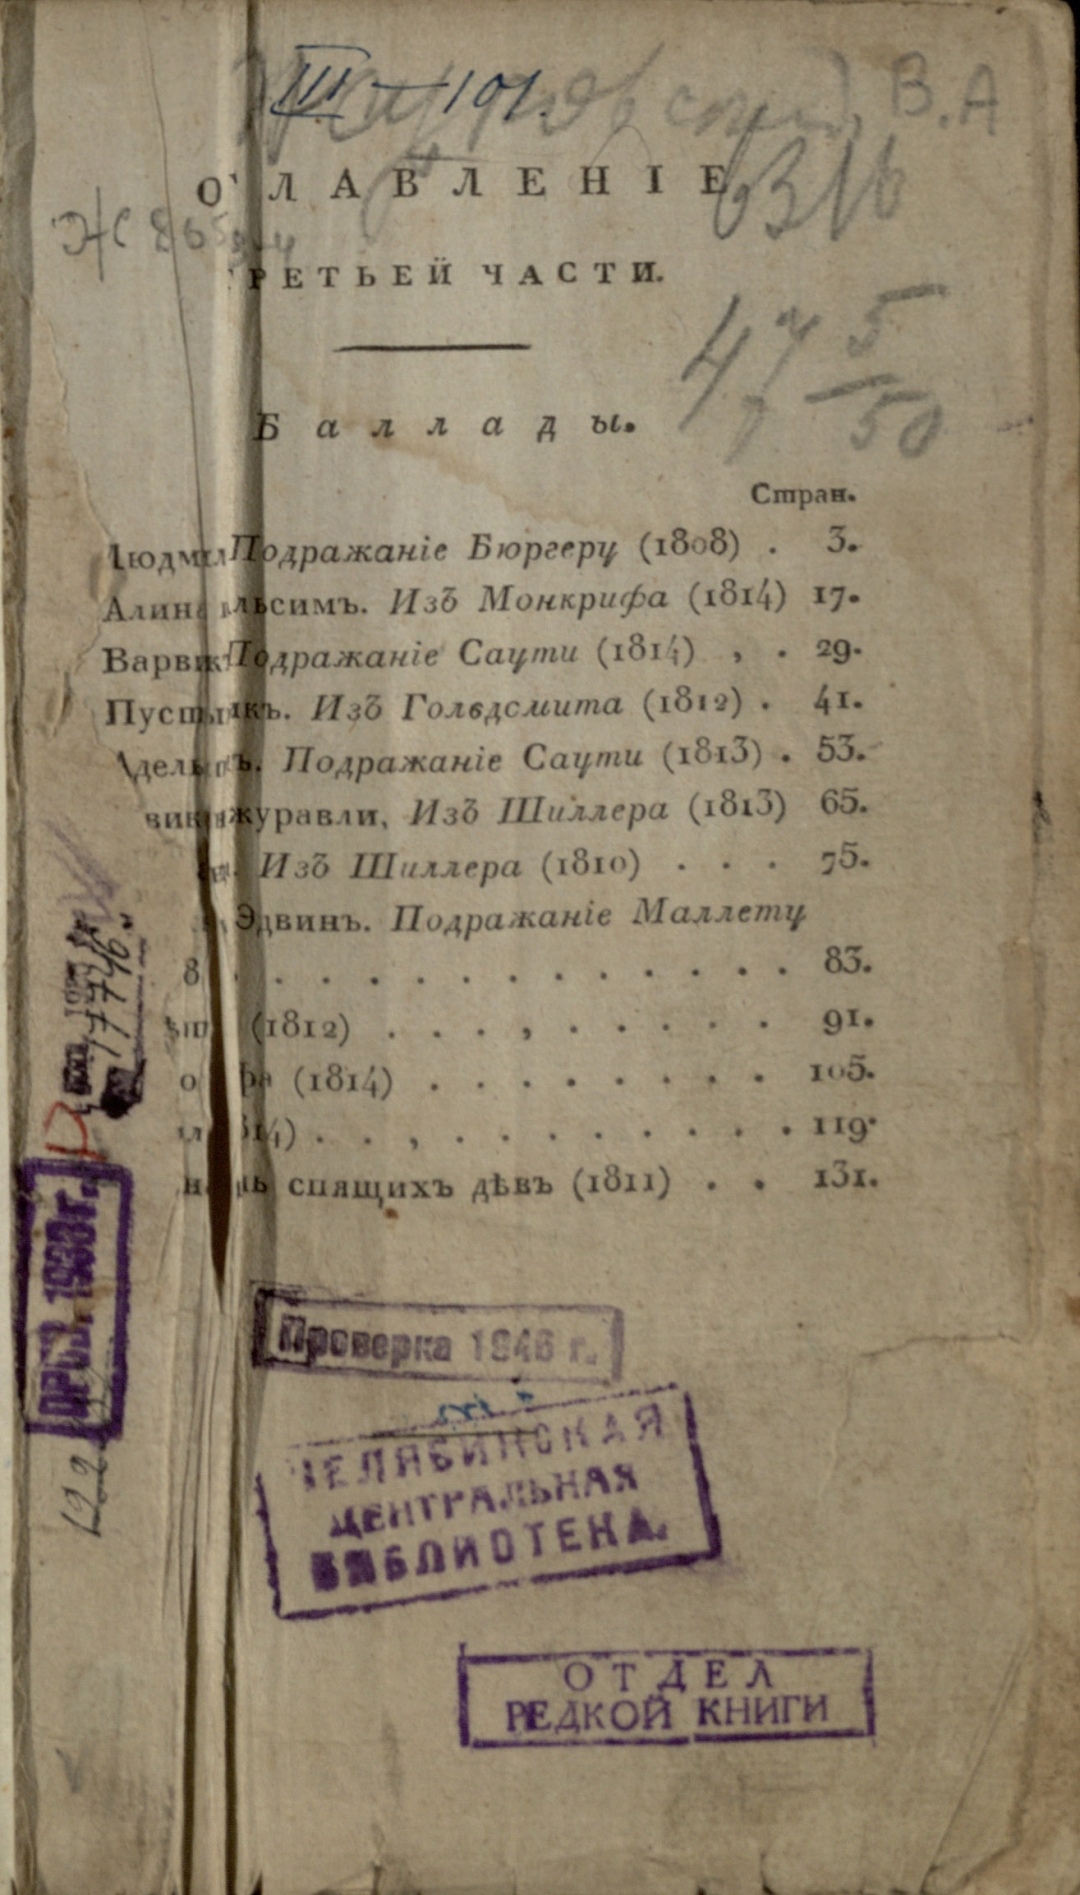 III — 101.
В.А
О ЛАВЛЕНІЕ
Ж 865
6316
РЕТЬЕЙ ЧАСТИ.
47 5
7 50
Баллады.
Стран.
Людмил Подражаніе Бюргеру (1808) . 3.
Алина льсимъ. Изъ Монкрифа (1814) 17.
Варвик Подражаніе Саути (1814) , . 29.
Пустын къ. Изъ Голвдсмита (1812) . 41.
Адель ъ. Подражаніе Саути (1813) . 53.
вик журавли, Изъ Шиллера (1813) 65.
Изъ Шиллера (1810) . . . 75.
Эдвинъ. Подражаніе Маллету
8 . . . . . . . . . . . . 83.
(1812) . . . , . . . . . 91.
о фа (1814) . . . . . . . . 105.
14) . . , . . . . . . . . 119.
ь спящихъ дѣвъ (1811) . . 131.
17746.
ОРПЗ. 1938 г.
Проверка 1946 г.
ЧЕЛЯБИНСКАЯ
ЦЕНТРАЛЬНАЯ
БИБЛИОТЕКА.
ОТДЕЛ
РЕДКОЙ КНИГИ